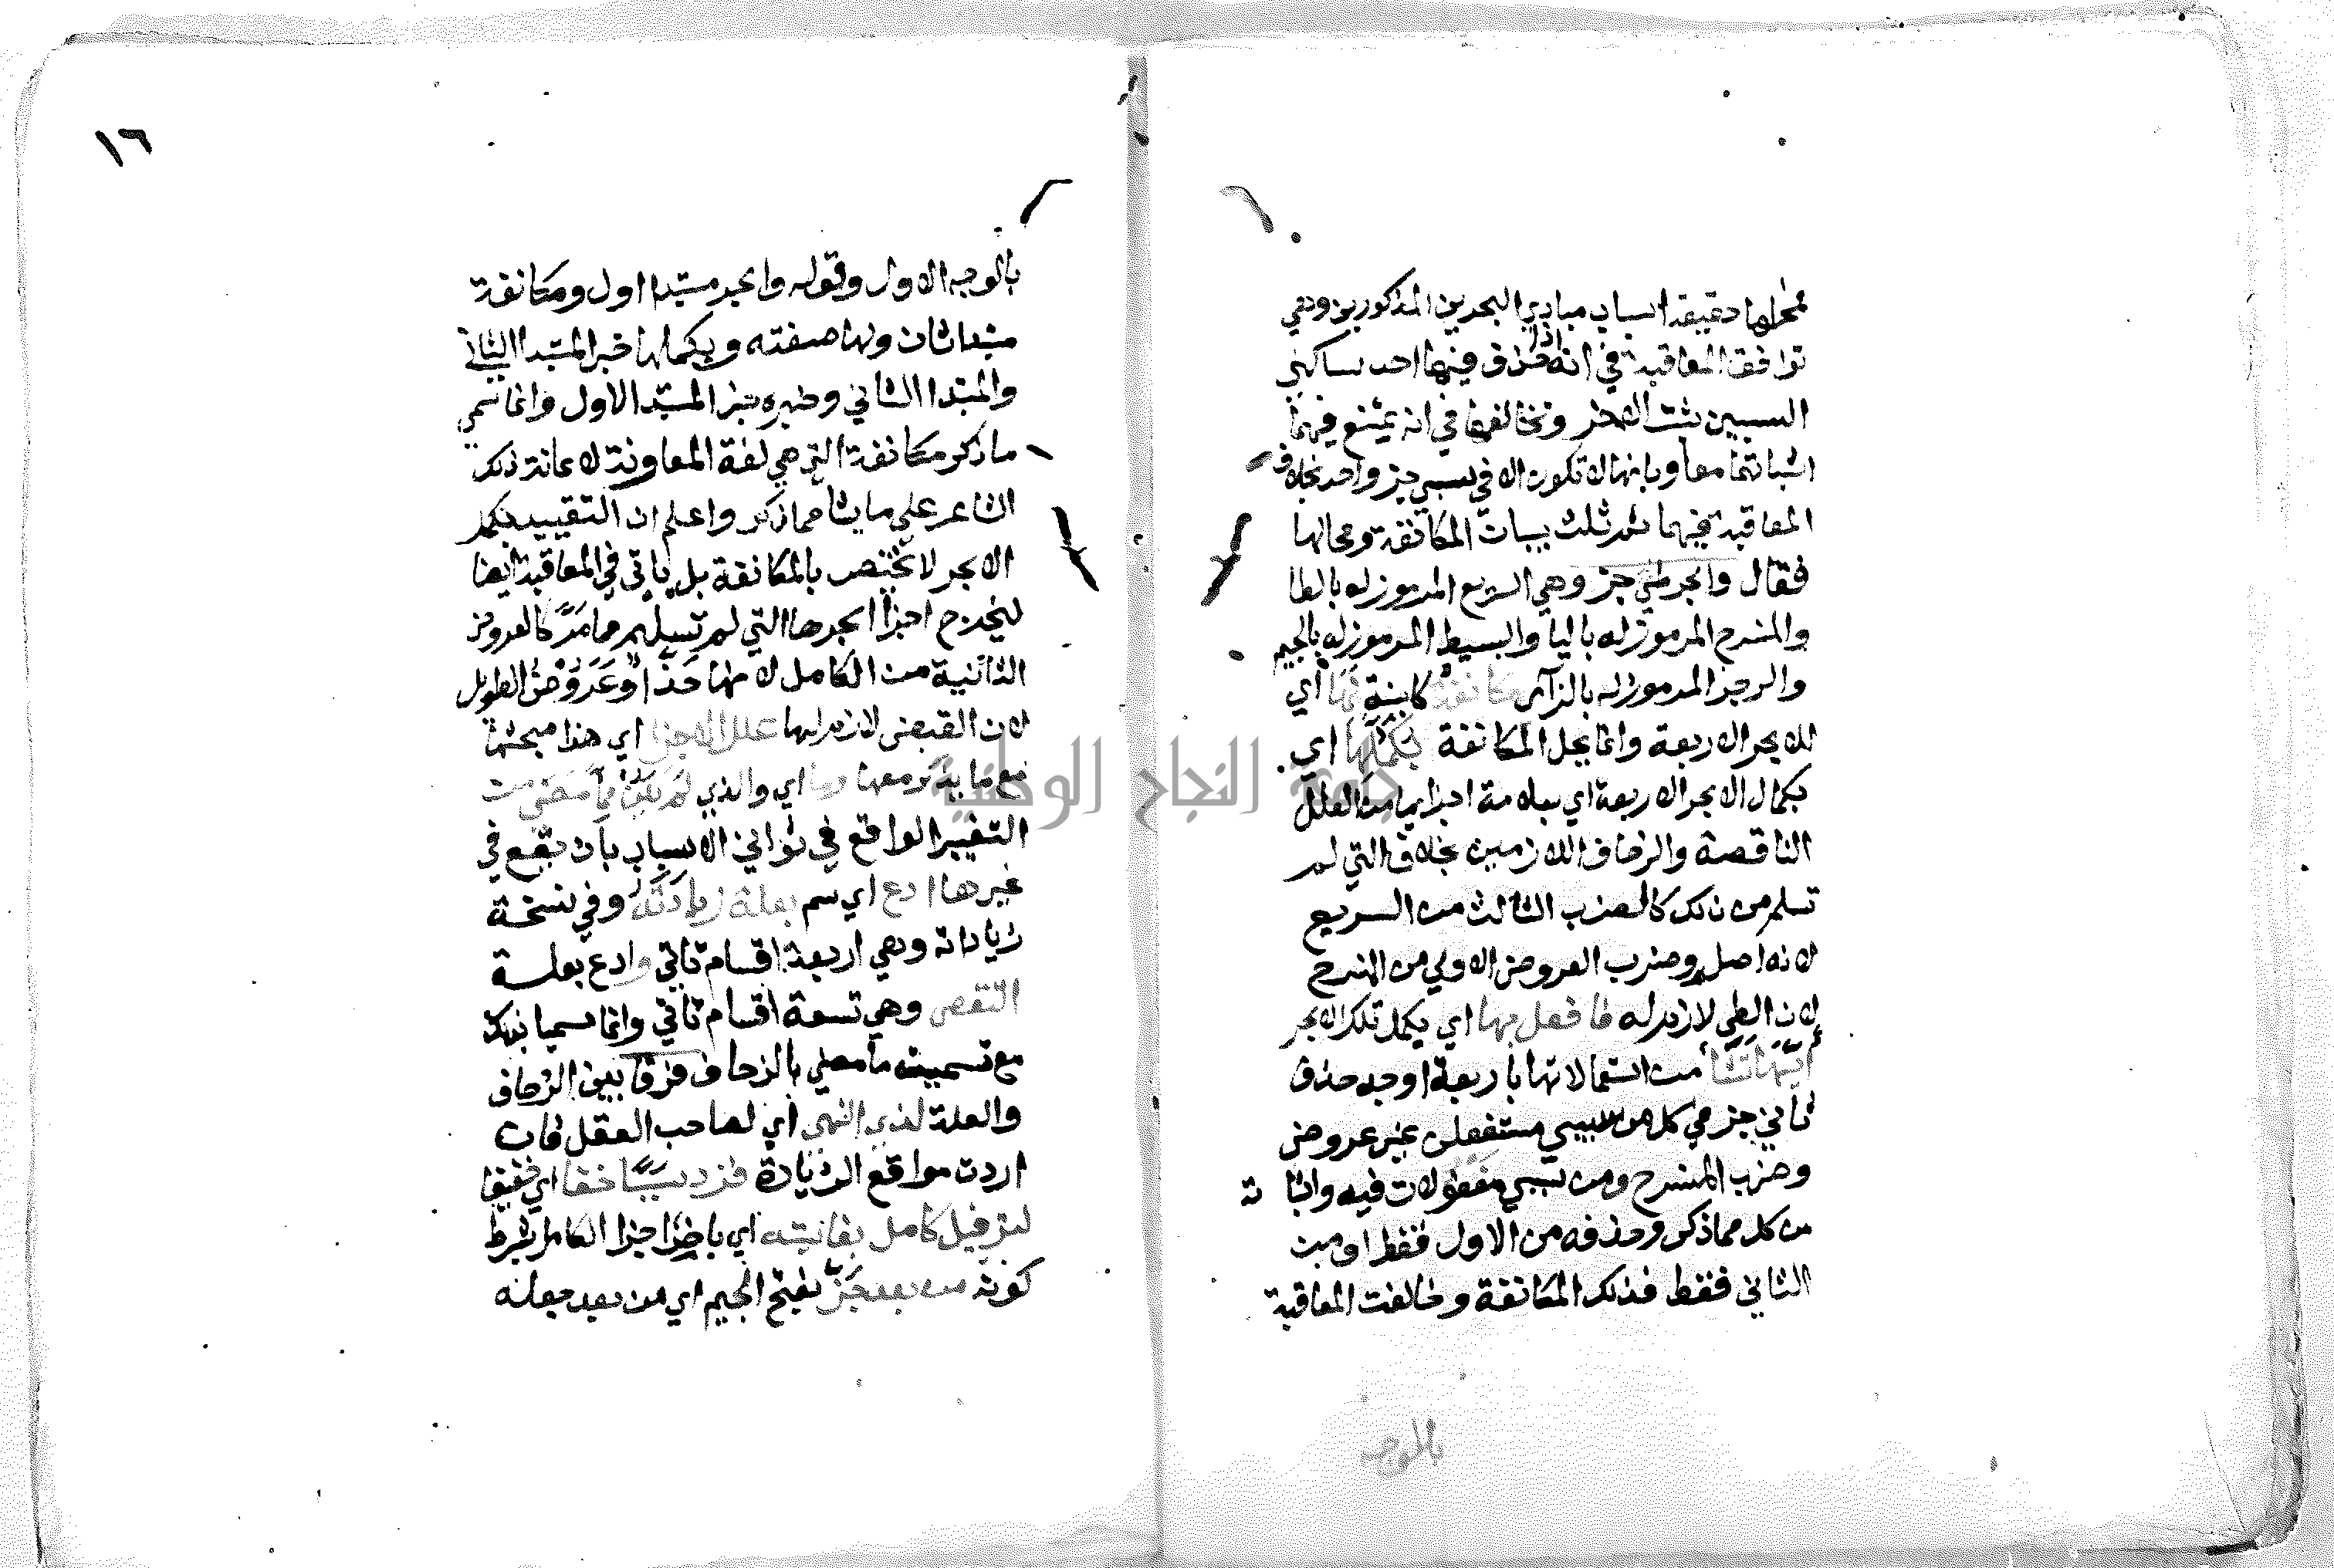 فمحلها حقيقة اسباب مبادي البحرين المذكورين وهي
توافق المعاقبة في انه اذا حذف فيها احد ساكني
السببين ثبت الاخر وتخالفها في انه يمتنع فيهما
اثباتهما معا وبانها لا تكون الا في سببي جزء واحد بخلاف
المعاقبة فيهما ثم ثلث ببيان المكانفة ومحالها
فقال وابحر طي جز وهي السريع المرموز له بالطا
والمنسرح المرموز له باليا والبسيط المرموز له بالجيم
والرجز المرموز له بالزاي مكانفة كاينة لها اي
للابحر الاربعة وانما تحل المكانفة بكملها اي
بكمال الابحر الاربعة اي بسلامة اجزايها من العلل
الناقصة والزحاف اللازمين بخلاف التي لم
تسلم من ذلك كالضرب الثالث من السريع
لانه اصلم وضرب العروض الاولي من المنسرح
لان الطي لازم له فافعل بها اي بكمل تلك الابحر
ايها تشا من استعمالاتها باربعة اوجه حذف
ثاني جزءي كل من سببي مستفعلن غير عروض
وضرب المنسرح ومن سببي مفعولات فيه واثباته
من كل مما ذكر وحذفه من الاول فقط او من
الثاني فقط فذلك المكانفة وخالفت المعاقبة
بالوجه
١٦
بالوجه الاول وقوله وابحر مبتدا اول ومكانفة
مبتدا ثان ولها صفته وبكملها خبر المبتدا الثاني
والمبتدا الثاني وخبره خبر المبتدا الاول وانما سمي
ما ذكر مكانفة التي هي لغة المعاونة لاعانة ذلك
الشاعر علي ما يشا مما ذكر واعلم ان التقييد بكمل
الابحر لا يختص بالمكانفة بل ياتي في المعاقبة ايضا
ليخرج اجزا ابحرها التي لم تسلم مما مر كالعروض
الثانية من الكامل لانها حذا وعروض الطويل
لان القبض لازم لها علل الاجزا اي هذا مبحثها
مع ما يذكر معها وما اي والذي لم يكن مما مضى من
التغيير الواقع في ثواني الاسباب بان يقع في
غيرها ادع اي سم بعلة زيادته وفي نسخة
زياداته وهي اربعة اقسام تاتي وادع بعلة
النقص وهي تسعة اقسام تاتي وانما سميا بعلة
مع تسمية ما مضي بالزحاف فرقا بين الزحاف
والعلة لذي النهى اي لصاحب العقل فان
اردت مواقع الزيادة فزد سببا خفا اي خفيفا
لترفيل كامل بغايته اي باخر اجزا الكامل بشرط
كونه من بعد جز بفتح الجيم اي من بعد جعله
جامعة النجاح الوطنية